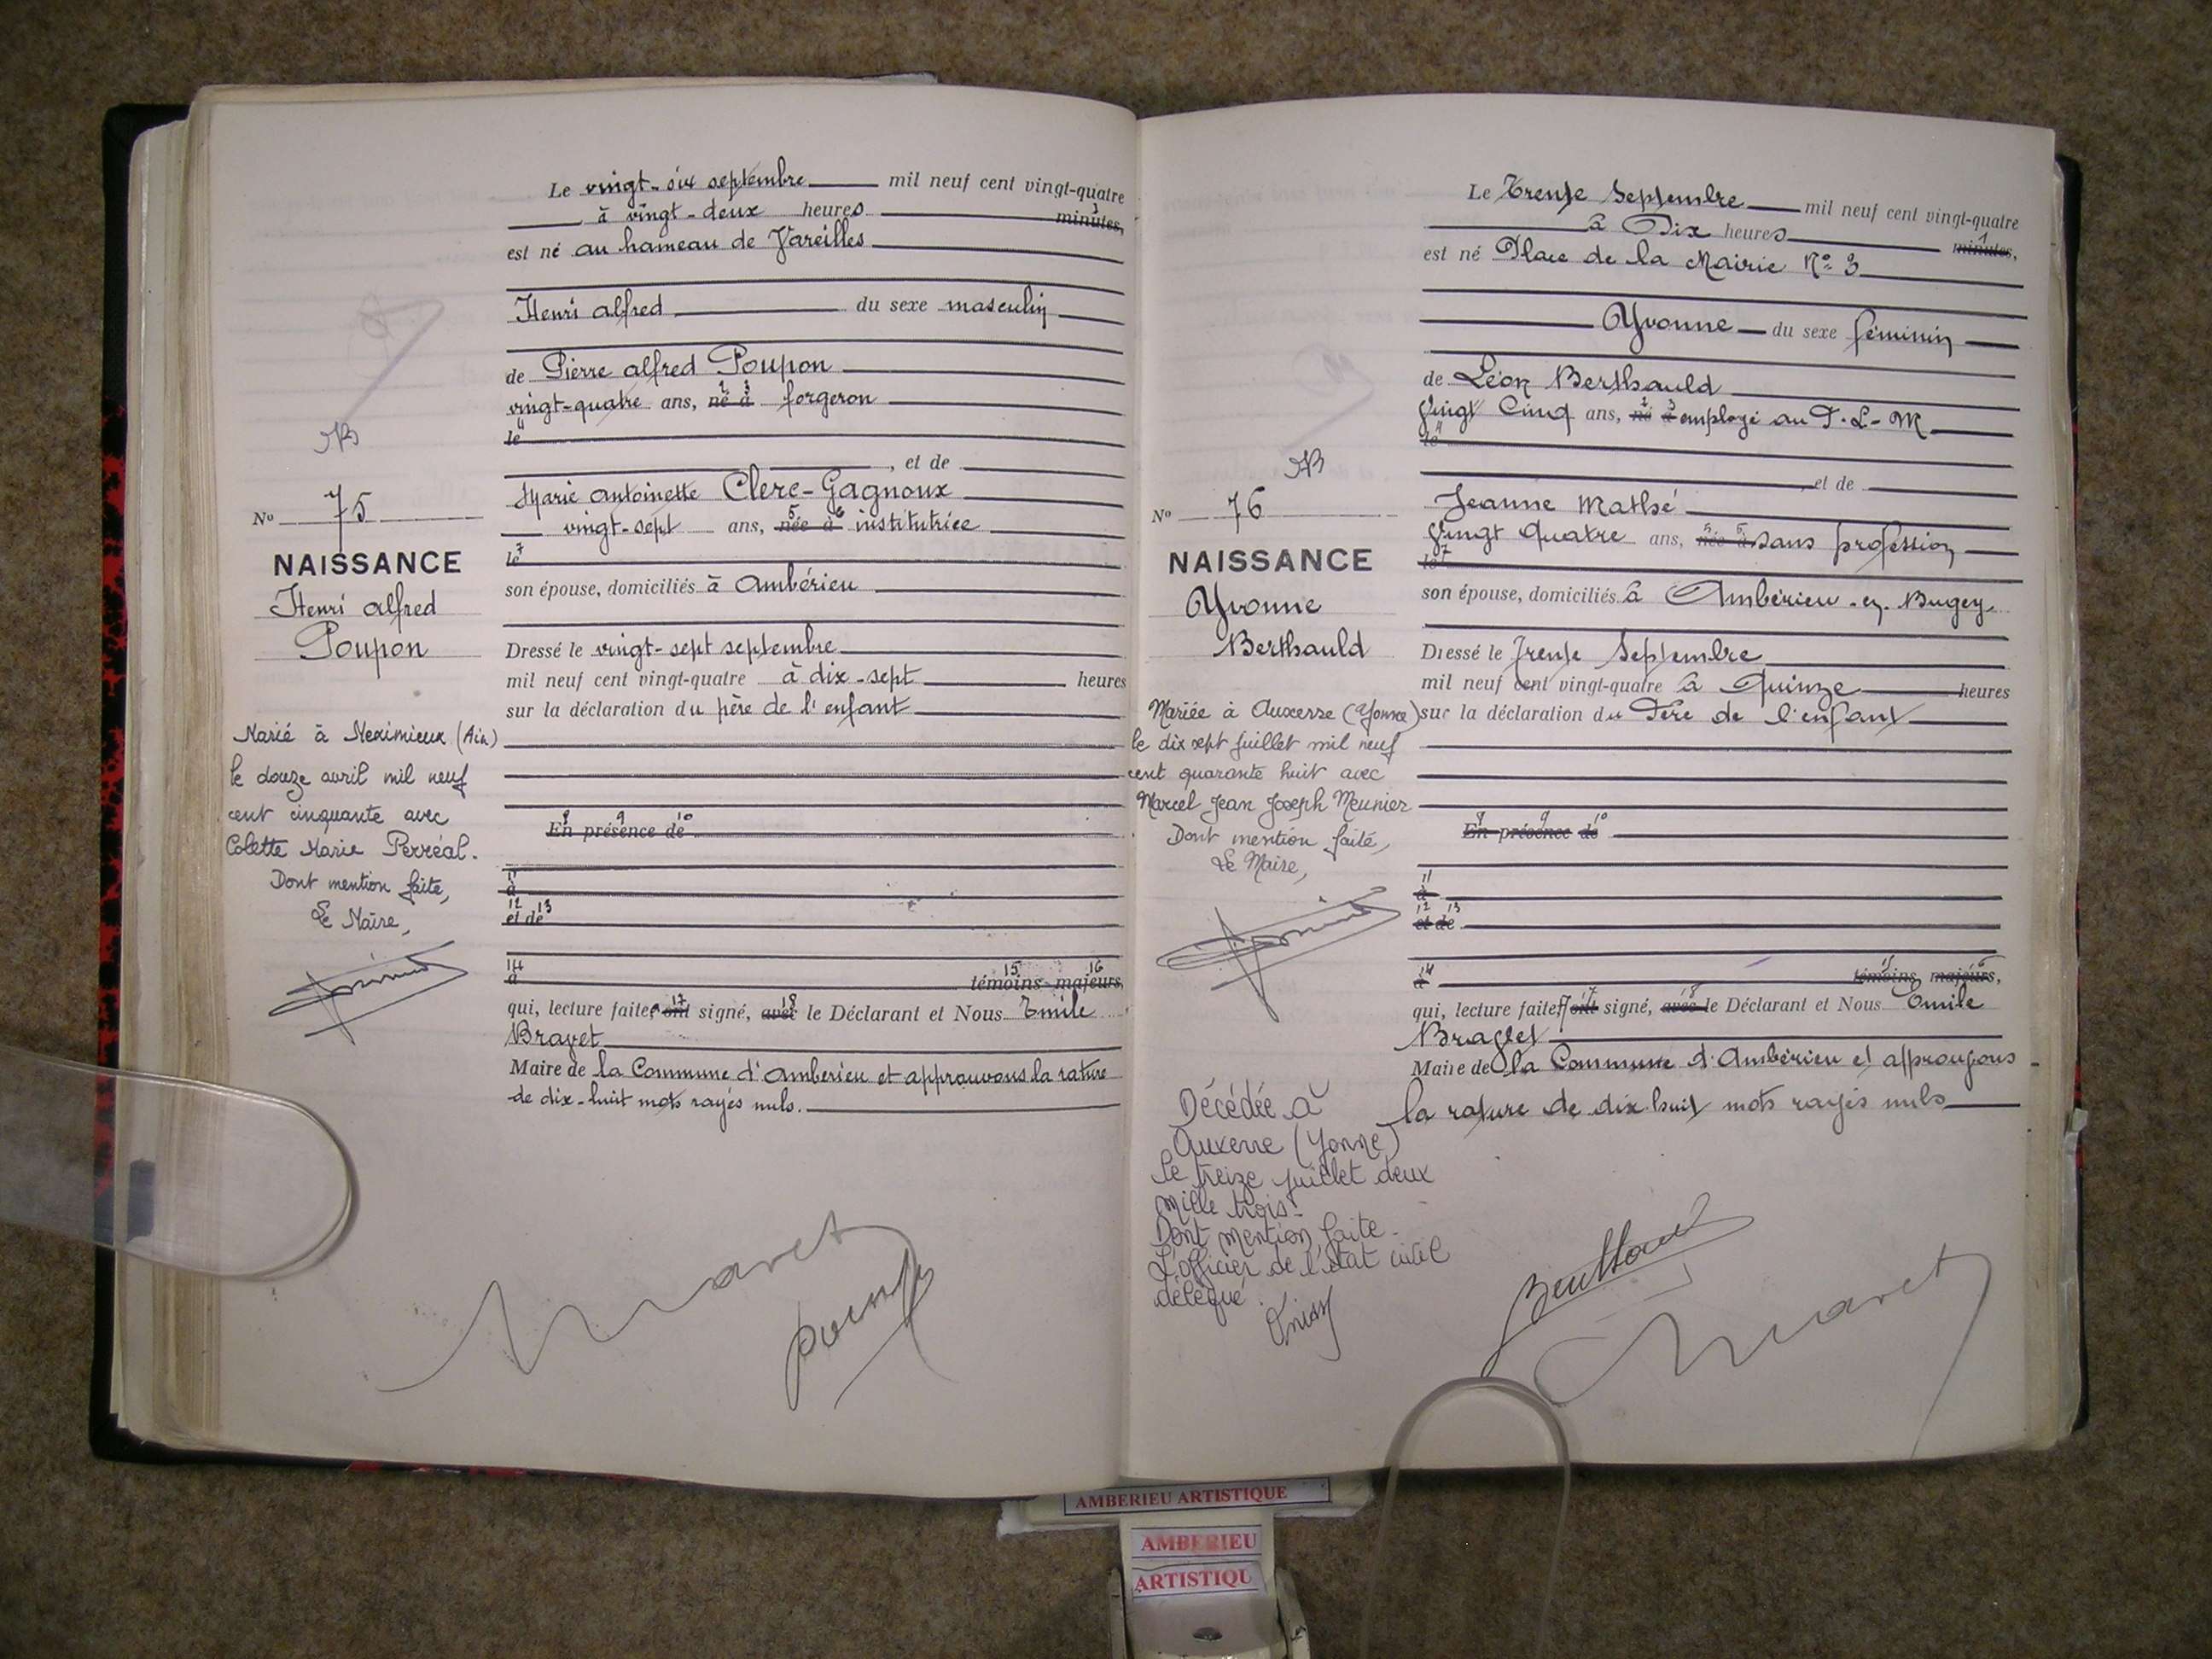 Le vingt-six septembre mil neuf cent vingt-quatre
à vingt-deux heures minutes,
est né au hameau de Vareilles
Henri alfred du sexe masculin
de Pierre alfred Poupon
vingt-quatre ans, né à forgeron
le
, et de
Marie antoinette Clerc-Gagnoux
vingt-sept ans, née à institutrice
le
son épouse, domiciliés à Ambérieu
Dressé le vingt-sept septembre
mil neuf cent vingt-quatre à dix-sept heures
sur la déclaration du père de l'enfant
En présence de
à
et de
à témoins majeurs,
qui, lecture faite, ont signé, avec le Déclarant et Nous Emile
Bravet
Maire de la Commune d'Amberieu et approuvons la rature
de dix-huit mots rayés nuls.
No 75
NAISSANCE
Henri alfred
Poupon
Marié à Meximieux (Ain)
le douze avril mil neuf
cent cinquante avec
Colette Marie Perréal.
Dont mention faite,
Le Maire,
Le Trente Septembre mil neuf cent vingt-quatre
à Dix heures minutes,
est né Place de la Mairie No 3
Yvonne du sexe féminin
de Léon Berthauld
Vingt Cinq ans, né à employé au P.L.M
le
et de
Jeanne Mathé
Vingt Quatre ans, née à sans profession
le
son épouse, domiciliés à Ambérieu-en-Bugey
Dressé le Trente Septembre
mil neuf cent vingt-quatre à Quinze heures
sur la déclaration du Père de l'enfant
En présence de
à
et de
à témoins majeurs,
qui, lecture faite, ont signé, avec le Déclarant et Nous Emile
Bravet
Maire de la Commune d'Ambérieu et approuvons
la rature de dix huit mots rayés nuls
No 76
NAISSANCE
Yvonne
Berthauld
Mariée à Auxerre (Yonne)
le dix sept juillet mil neuf
cent quarante huit avec
Marcel Jean Joseph Meunier
Dont mention faite,
Le Maire,
Décédée à
Auxerre (Yonne)
le treize juillet deux
mille trois.
Dont mention faite.
L'officier de l'état civil
délégué
AMBERIEU ARTISTIQUE
AMBERIEU
ARTISTIQU